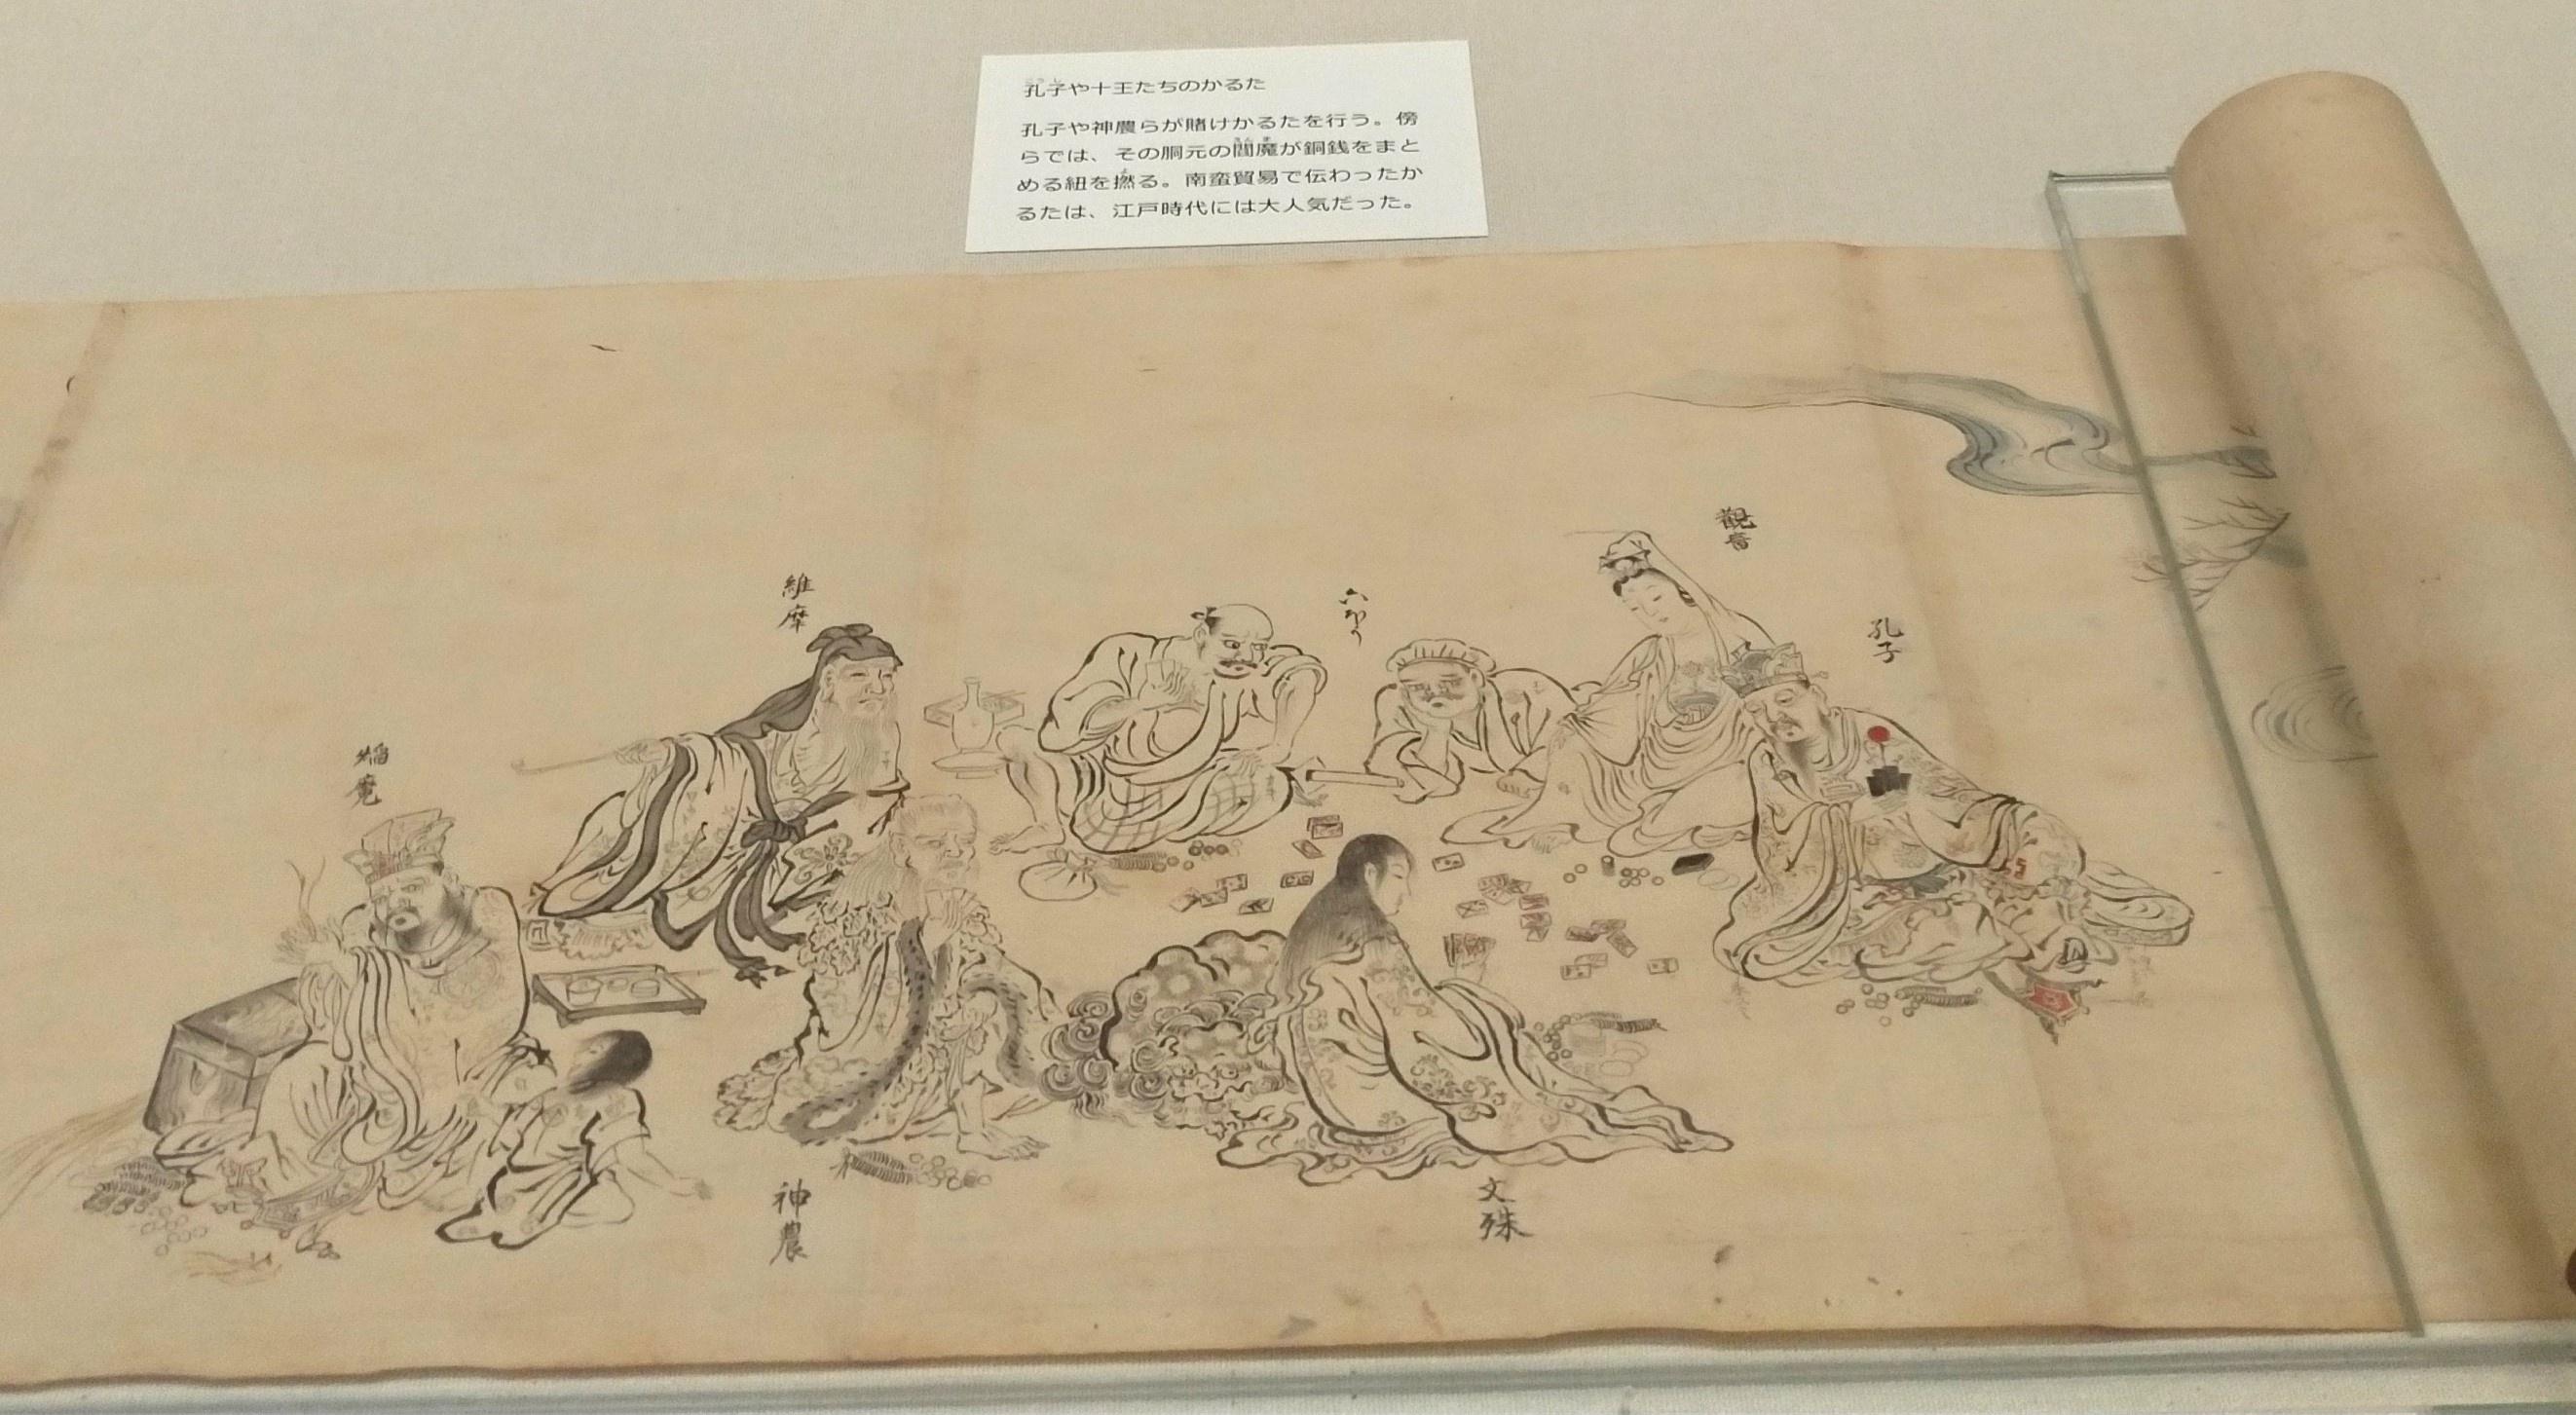 孔子や十王たちのかるた
孔子や神農らが賭けかるたを行う。傍
らでは、その胴元の閻魔が銅銭をまと
める紐を撚る。南蛮貿易で伝わったか
るたは、江戸時代には大人気だった。
觀音
孔子
維摩
神農
文殊